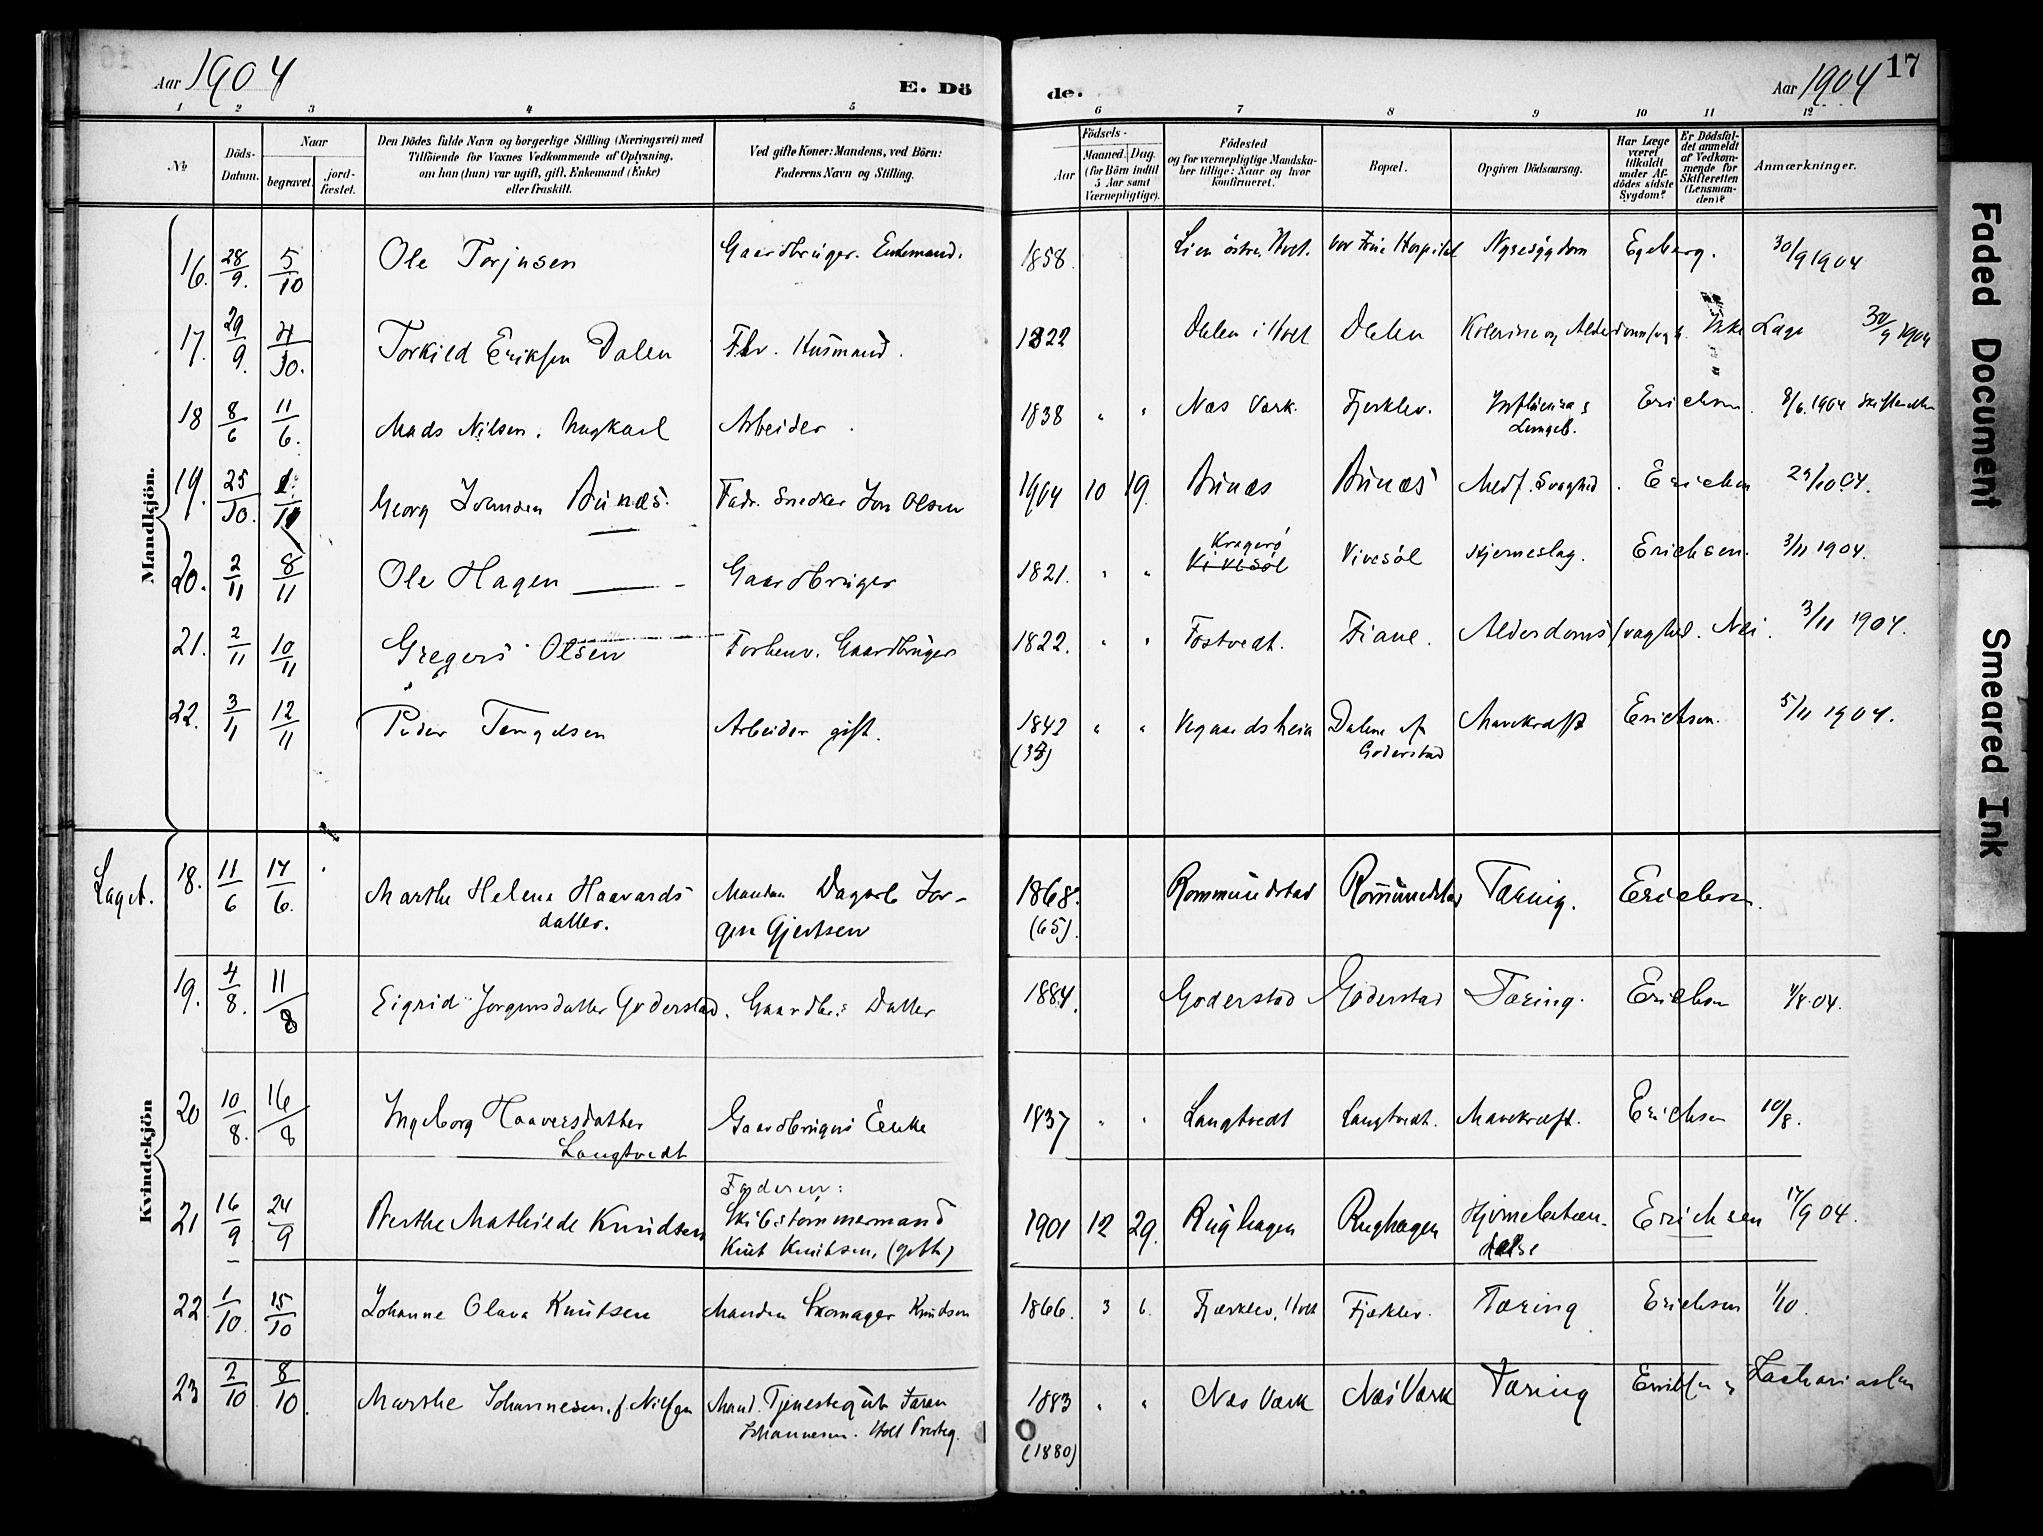 Aar 1904
E. Dö
de.
Aar 1904
17
1 2 3 4 5 6 7 8 9 10 11 12
№
Döds-Datum.
Naar
begravet.
jord-fæstet.
Den Dödes fulde Navn og borgerlige Stilling (Næringsvei) med
Tilföiende for Voxnes Vedkommende af Oplysning,
om han (hun) var ugift, gift, Enkemand (Enke)
eller fraskilt.
Ved gifte Koner: Mandens, ved Börn:
Faderens Navn og Stilling.
Födsels-
Aar
Maaned. Dag.
(for Börn indtil
5 Aar samt
Værnepligtige).
Födested
og for værnepligtige Mandska-
ber tillige: Naar og hvor
konfirmeret.
Bopæl.
Opgiven Dödsaarsag.
Har Læge
været
tilkaldt
under Af-
dödes sidste
Sygdom?
Er Dödsfal-
det anmeldt
af Vedkom-
mende for
Skifteretten
(Lensman-
den)?
Anmærkninger.
Mandkjön.
16. 28/9. 5/10 Ole Torjusen Gaardbruger. Enkemand. 1858. Lien östre, Holt. Vor Frue Hospital Nyresygdom Egeberg. 30/9 1904
17. 29/9. 4/10. Torkild Eriksen Dalen Fhv. Husmand. 1822 Dalen i Holt Dalen Kolerine og Alderdomssvagh. Ikke Læge 30/9 1904
18 8/6 11/6. Mads Nilsen. Arbeider. 1838 " " Næs Værk. Fjerklev. Influenza & Lungeb. Erichsen. 8/6 1904
19. 25/10. Georg Johnsen Bunæs. Fadr. Snedker Jon Olsen 1904 10 19 Bunæs Bunæs Medf. Svaghed. Erichsen 29/10 04.
20. 2/11 8/11 Ole Hagen Gaardbruger 1821. " " Kragerø Vivesöl Vivesöl Hjerneslag. Erichsen. 3/11 1904.
21. 2/11 10/11 Gregers Olsen Forhenv. Gaardbruger 1822. " " Fostvedt. Fiane. Alderdomssvaghed. Nei. 3/11 1904.
22. 3/11 12/11 Peder Tengelsen Arbeider gift. 1842 " " Vegaardsheia Dalene u/ Goderstad Mavekræft Erichsen. 5/11 1904.
Laget.
Kvindekjön
18. 11/6 17/6. Marthe Helene Haavards-
datter. Manden Dagarb. Jör-
gen Gjertsen 1868. (65). Rommundstad Rommundstad Tæring. Erichsen.
19. 4/8. 11/8 Sigrid Jörgensdatter Goderstad. Gaardbr.s Datter 1884. Goderstad Goderstad Tæring. Erichsen 4/8.04.
20 10/8. 16/8 Ingeborg Haaversdatter
Langtvedt Gaardbrugers Enke 1837 " " Langtvedt Langtvedt. Mavekræft. Erichsen 10/8.
21 16/9 24/9 Berthe Mathilde Knudsen Faderen:
Skibstömmermand
Knut Knutsen, (gift) 1901 12 29. Rughagen Rughagen Hjernebetæn-
delse Erichsen 17/9 04.
22 1/10. 15/10 Johanne Olava Knutsen Manden Skomager Knudsen 1866. 3 6. Fjærklev, Holt Fjærklev. Tæring Erichsen 1/10.
23 2/10 8/10. Marthe Johannesen, f. Nilsen Mand. Tjenestegut
Johannesen. Holt Presteg. 1883 " " (1880) Næs Værk Næs Værk Tæring Zachariassen
Faded Document
Smeared Ink